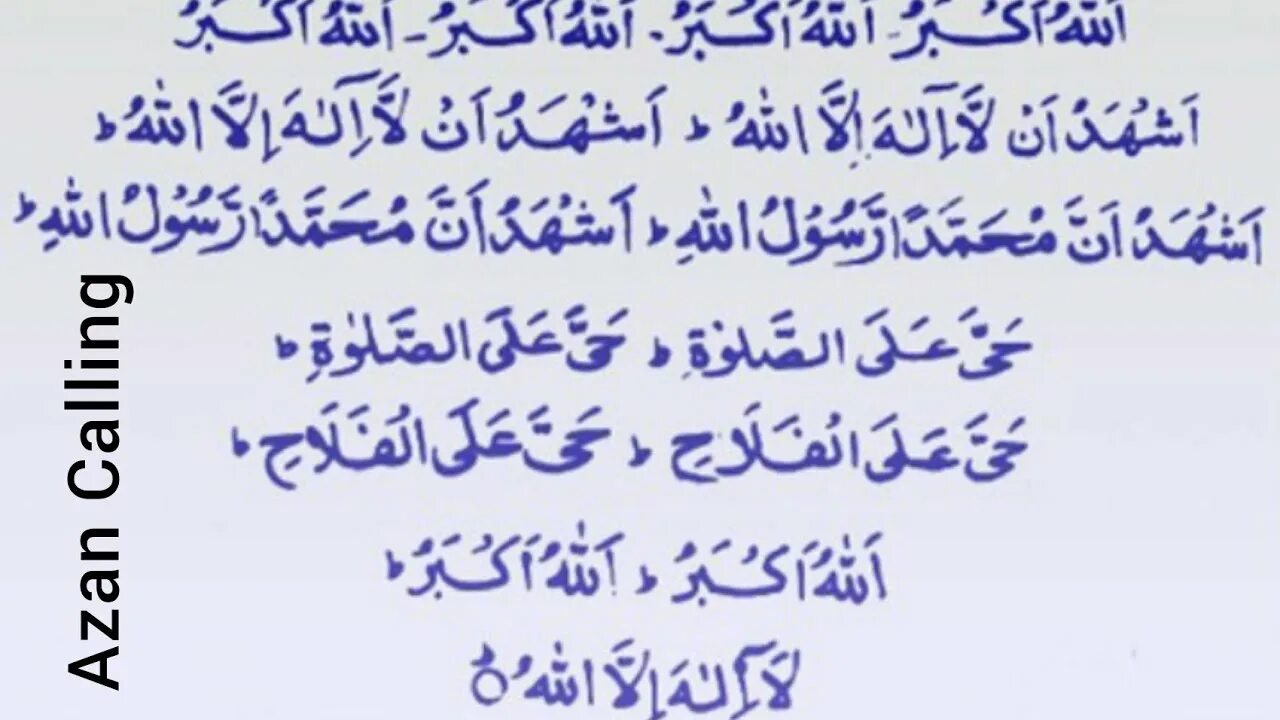 اَللّٰهُ اَكْبَرُ۔ اَللّٰهُ اَكْبَرُ۔ اَللّٰهُ اَكْبَرُ۔ اَللّٰهُ اَكْبَرُ
اَشْهَدُ اَنْ لَّآ اِلٰهَ اِلَّا اللّٰهُ ؕ اَشْهَدُ اَنْ لَّآ اِلٰهَ اِلَّا اللّٰهُ ؕ
اَشْهَدُ اَنَّ مُحَمَّدًا رَّسُوْلُ اللّٰهِ ؕ اَشْهَدُ اَنَّ مُحَمَّدًا رَّسُوْلُ اللّٰهِ ؕ
حَیَّ عَلَی الصَّلٰوةِ ؕ حَیَّ عَلَی الصَّلٰوةِ ؕ
حَیَّ عَلَی الْفَلَاحِ ؕ حَیَّ عَلَی الْفَلَاحِ ؕ
اَللّٰهُ اَكْبَرُ ؕ اَللّٰهُ اَكْبَرُ ؕ
لَآ اِلٰهَ اِلَّا اللّٰهُ ؕ
Azan Calling